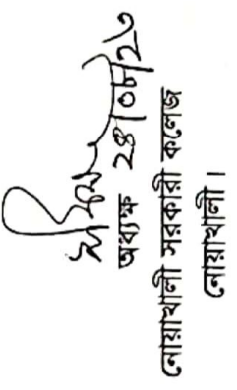 অধ্যক্ষ ২৪|০৮|২৩
নোয়াখালী সরকারী কলেজ
নোয়াখালী।